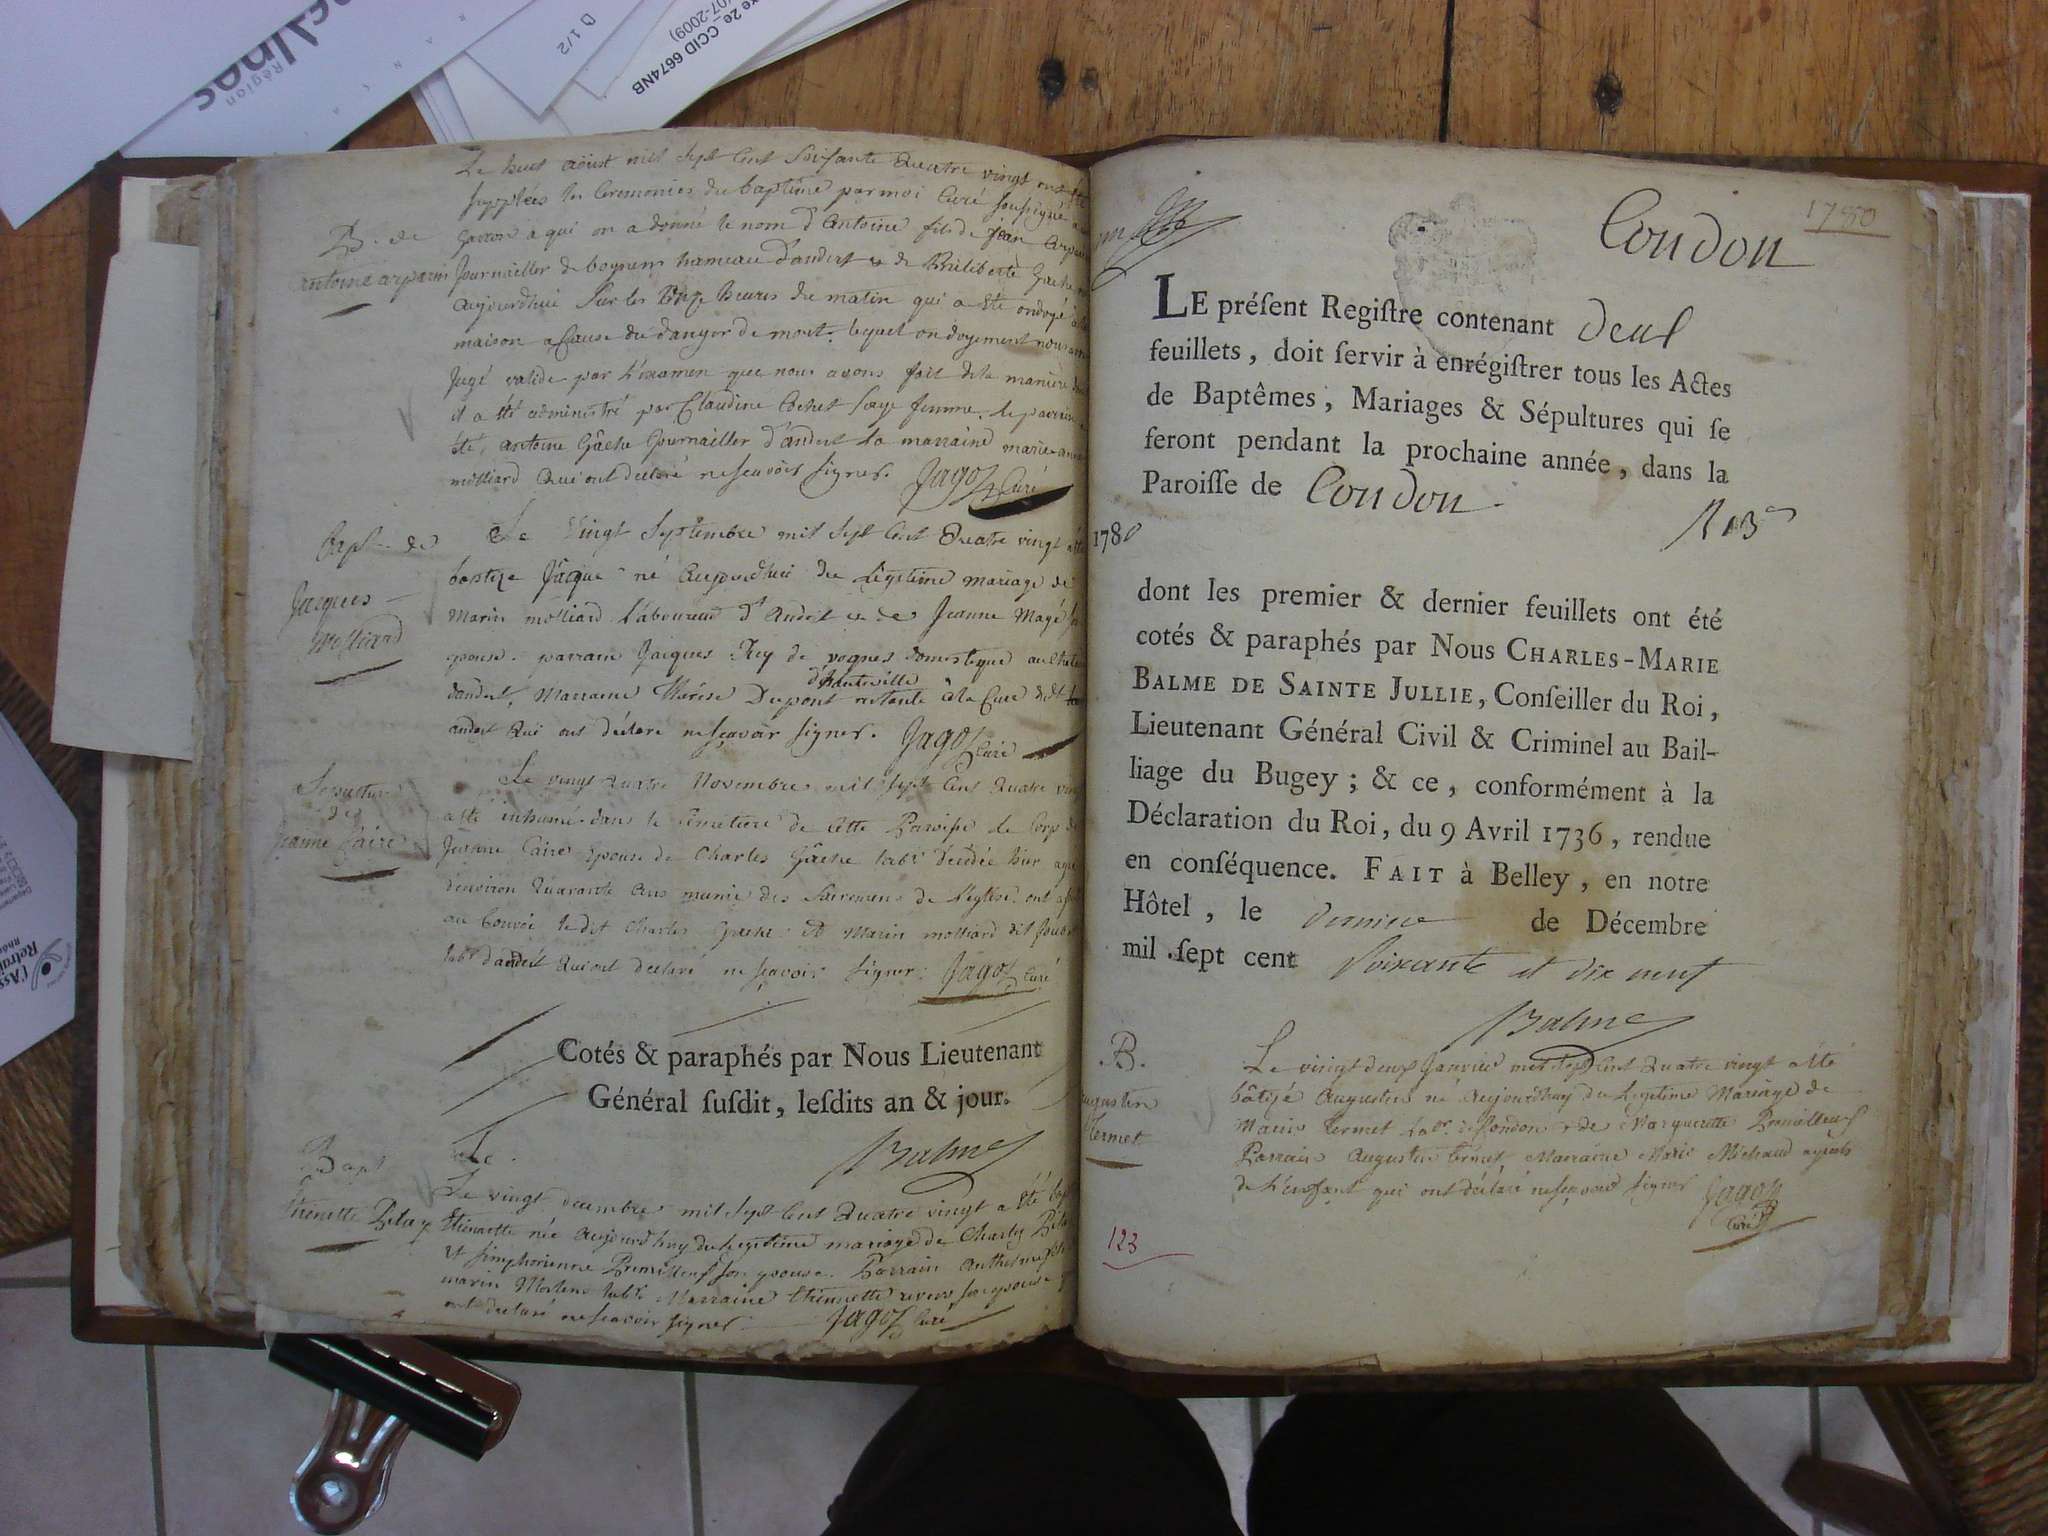 Région
D 1/2
2e_CCID 6674NB
07-2009)
Le huit aoust mil sept cent soisante quatre vingt ont été
supplées les Ceremonies du baptême par moi Curé soussigné a un
B. de
garcon a qui on a donné le nom d'antoine fils de jean arpin
antoine arpin
journailler de hameau d'andert & de Gache
aujourdhui sur les heures du matin qui a été ondoyé à la
maison a Cause du danger de mort. lequel ondoyement nous avons
jugé valide par l'examen que nous avons fait de la maniere dont
il a été administré par Claudine Cochet sage femme. le parrain a
été antoine Gâche journailler d'andert la marraine marie anne
molliard qui ont declaré ne scavoir signer. Jagoz Curé
Bapt. de
Le vingt septembre mil sept cent quatre vingt a été
Jacques
Molliard
baptize Jâque né aujourdhui du legitime mariage de
marin molliard laboureur d'Andert & de Jeanne Magé son
epouse. parrain Jacques Rey de vognes domestique au
d'hauteville
dandert, Marraine Therese Dupont restante a la Cure
andert qui ont déclaré ne sçavoir signer. Jagoz Curé
Sepulture
de
Jeanne Caire
Le vingt quatre Novembre mil sept cent quatre vingt
a été inhumé dans le cemetiere de cette Paroisse le corp de
Jeanne Caire épouse de Charles Gâche labr decedée hier agée
d'environ quarante ans munie des sacremens de l'eglise. ont assisté
au Convoi le dit Charles Gache & Marin molliard dit
labr dandert qui ont declaré ne sçavoir signer. Jagoz Curé
Cotés & paraphés par Nous Lieutenant
Général susdit, lesdits an & jour.
Balme
Bapt
Le
Etienette Bilay
Le vingt decembre mil sept cent quatre vingt a été bapt
Etienette née aujourdhuy du legitime mariage de Charles
et simphorienne Premillieux son epouse. Parrain Anthelme
marin labr. Marraine Etiennette son epouse
ont declaré ne scavoir signer Jagoz Curé
1780
Condon
LE préſent Regiſtre contenant deux
feuillets, doit ſervir à enrégiſtrer tous les Actes
de Baptêmes, Mariages & Sépultures qui ſe
feront pendant la prochaine année, dans la
Paroiſſe de Condon
1780
dont les premier & dernier feuillets ont été
cotés & paraphés par Nous CHARLES-MARIE
BALME DE SAINTE JULLIE, Conſeiller du Roi,
Lieutenant Général Civil & Criminel au Bail-
liage du Bugey; & ce, conformément à la
Déclaration du Roi, du 9 Avril 1736, rendue
en conſéquence. FAIT à Belley, en notre
Hôtel, le dernier de Décembre
mil ſept cent soixante et dix neuf
Balme
B.
augustin
termet
Le vingt deux Janvier mil sept cent quatre vingt a été
bâtizé augustin né aujourdhuy du legitime Mariage de
Marin termet labr. de Condon & de Marguerite Premillieux
Parrain augustin termet, Marraine Marie Michaud ayeuls
de l'enfant qui ont déclaré ne sçavoir signer Jagoz
Curé
123